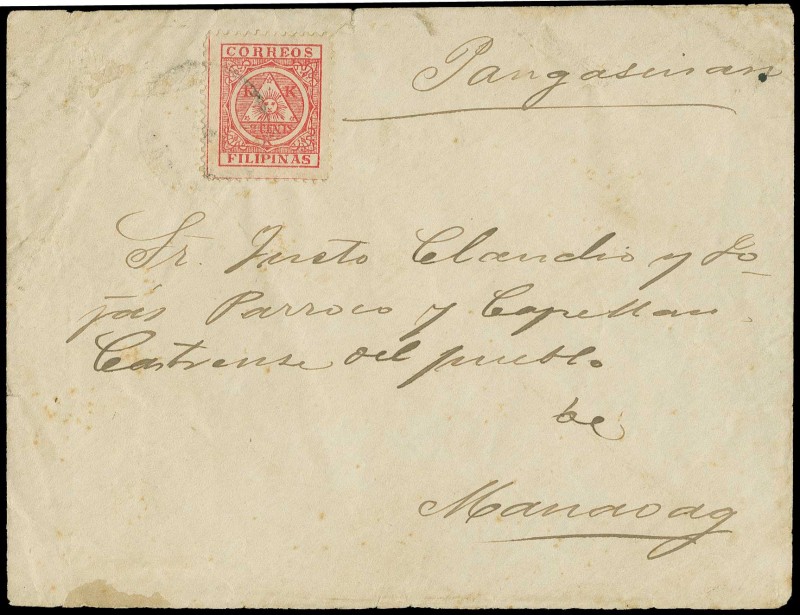 CORREOS
K K
2 CENT.
FILIPINAS
Pangasinan
Sr. Justo Claudio y Fo-
jás Parroco y Capellan
Castrense del pueblo
de
Manaoag